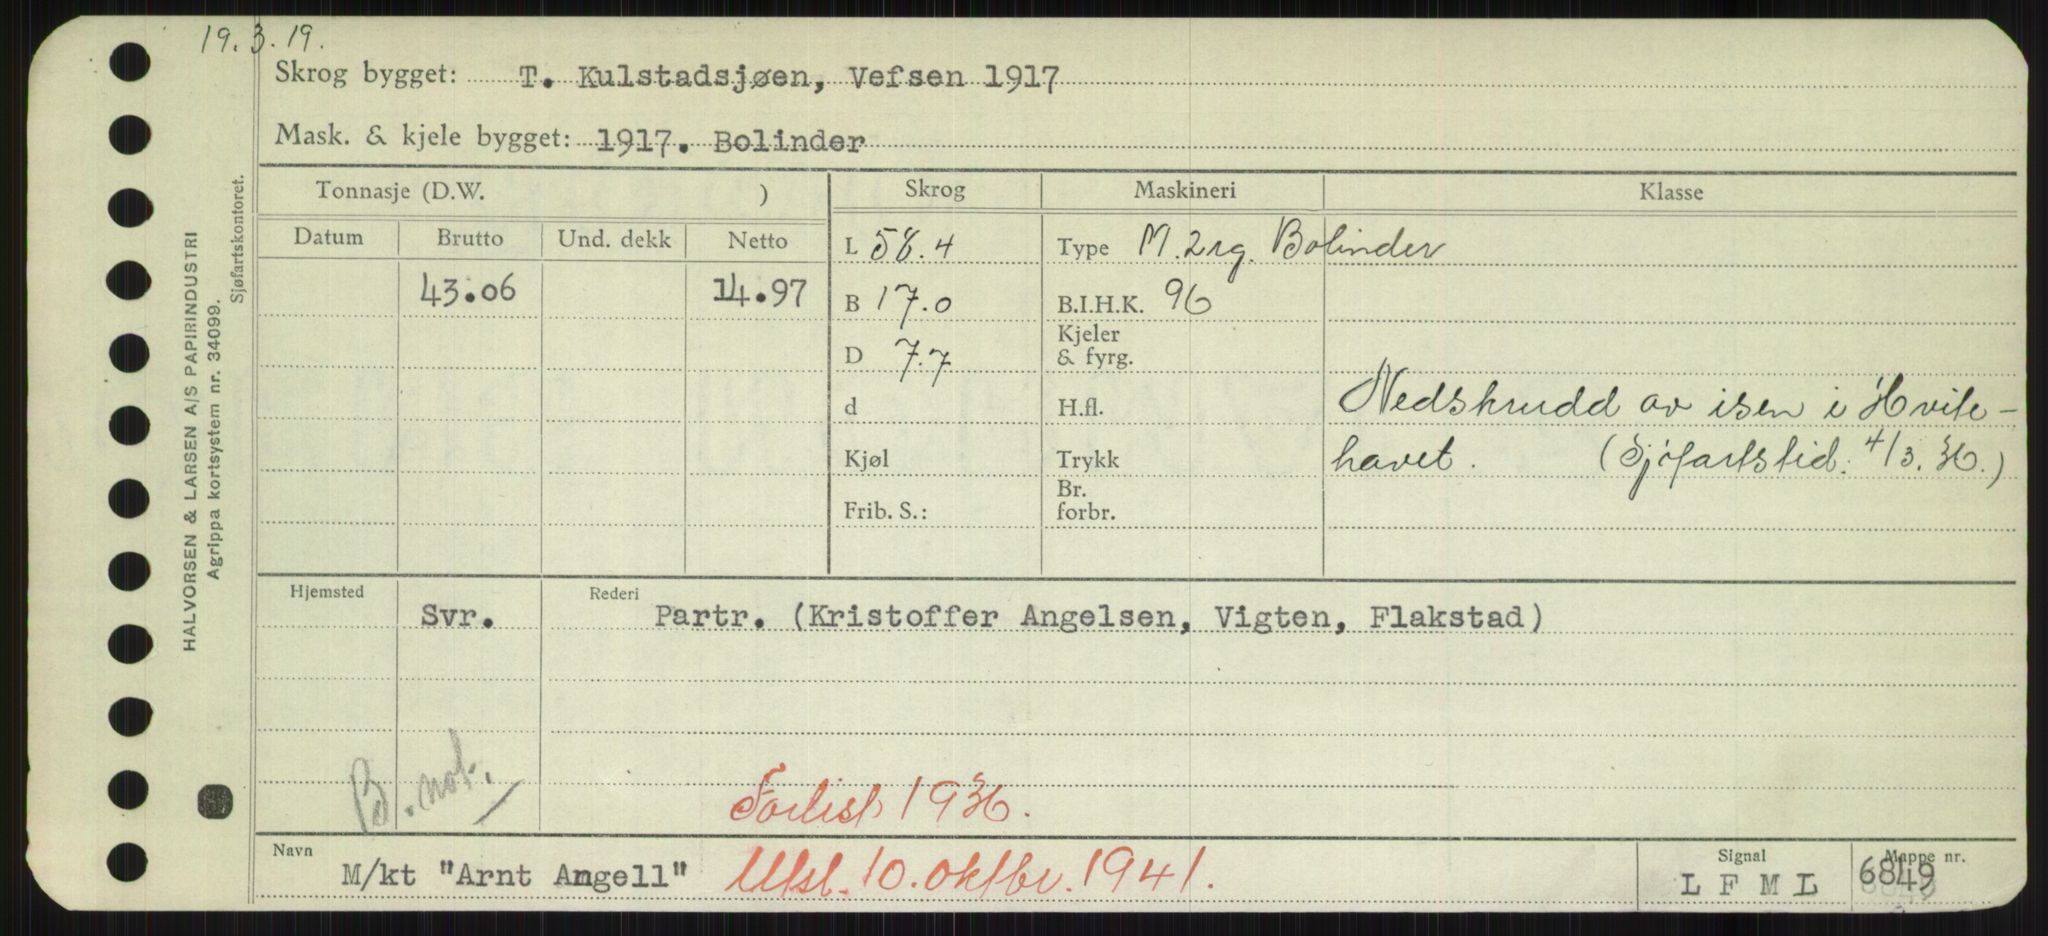 19.3.19.
Skrog bygget: T. Kulstadsjøen, Vefsen 1917
Mask. & kjele bygget: 1917. Bolinder
Tonnasje (D.W. )
Skrog
Maskineri
Klasse
Datum Brutto Und. dekk Netto
43.06 14.97
L 58.4
B 17.0
D 7.7
d
Kjøl
Frib. S.:
Type M. 2 sg. Bolinder
B.I.H.K. 96
Kjeler
& fyrg.
H.fl.
Trykk
Br.
forbr.
Nedskrudd av isen i Hvite-
havet. (Sjøfartstid. 4/3.36.)
Hjemsted Svr.
Rederi Partr. (Kristoffer Angelsen, Vigten, Flakstad)
B. not.
Forlist 1936.
Navn M/kt "Arnt Angell" Utsl. 10. oktbr. 1941.
Signal
L F M L
Mappe nr.
6849
HALVORSEN & LARSEN A/S PAPIRINDUSTRI
Agrippa kortsystem nr. 34099.
Sjøfartskontoret.